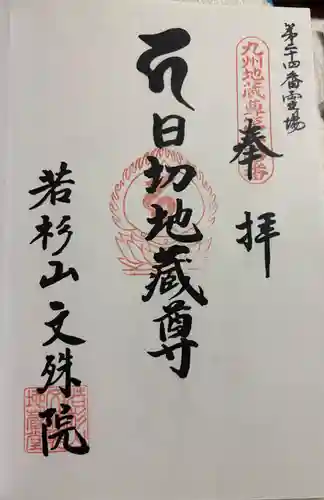 第二十四番霊場
九州地蔵尊
奉拝
日切地蔵尊
若杉山 文殊院